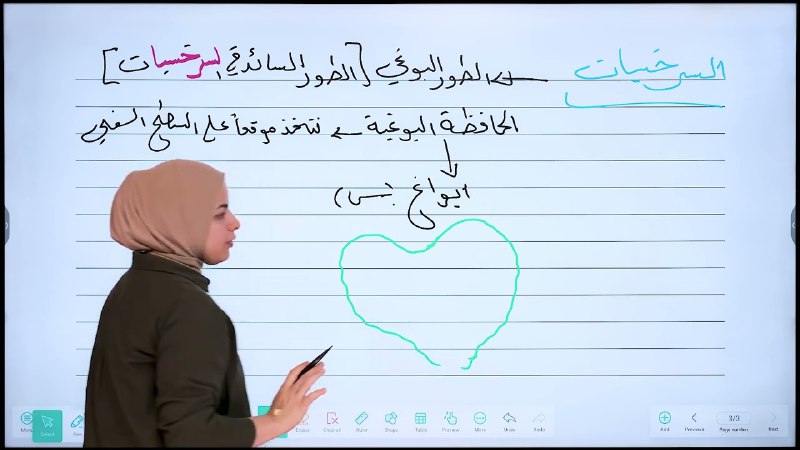 السرخسيات
← الطور البوغي [الطور السائد في السرخسيات]
الحافظة البوغية ← تتخذ موقعاً على السطح السفلي
↓
ابواغ (1س)
Select
Pen
Eraser
Clear all
Ruler
Shape
Table
Preview
More
Undo
Redo
Add
Previous
3/3
Page number
Next